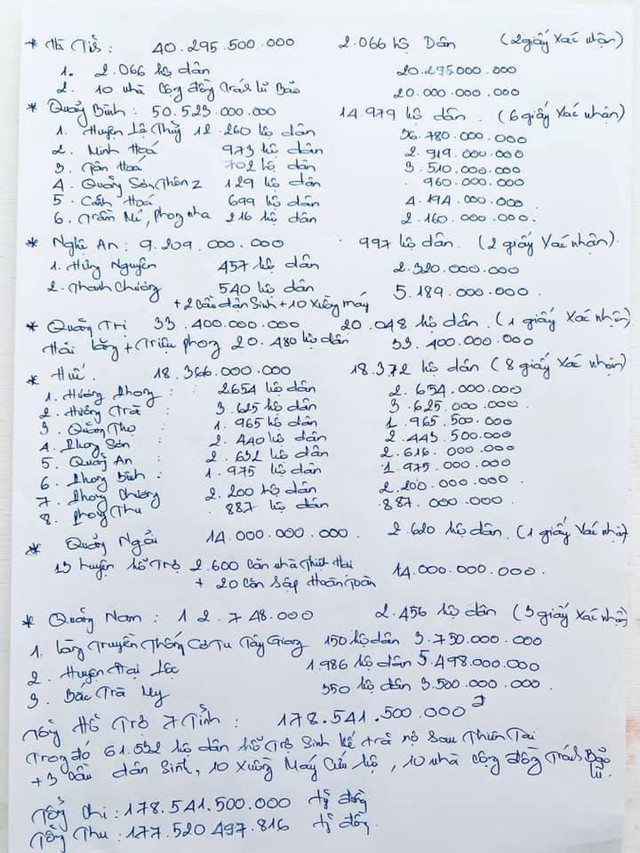 * Hà Tĩnh : 40.295.500.000 2.066 hộ Dân (2 giấy Xác nhận)
1. 2.066 hộ dân 20.295.000.000
2. 10 nhà Cộng đồng Tránh lũ Bão 20.000.000.000
* Quảng Bình : 50.523.000.000 14.979 hộ dân . (6 giấy Xác nhận)
1. Huyện Lệ Thủy 12.260 hộ dân 36.780.000.000
2. Minh Hoá 973 hộ dân 2.919.000.000
3. Tân Hoá 702 hộ dân 3.510.000.000
4. Quảng Sơn, Thôn 2 129 hộ dân 960.000.000
5. Cảnh Hoá 699 hộ dân 4.194.000.000
6. Trằm Mé, Phong nha 216 hộ dân 2.160.000.000.
* Nghệ An : 9.209.000.000 997 hộ dân . (2 giấy Xác nhận).
1. Hưng Nguyên 457 hộ dân 2.320.000.000
2. Thanh Chương 540 hộ dân 5.189.000.000
+ 2 Cầu dân Sinh + 10 Xuồng máy
* Quảng Trị 33.400.000.000 20.048 hộ dân . (1 giấy Xác nhận)
Hải Lăng + Triệu phong 20.480 hộ dân 33.400.000.000
* Huế . 18.366.000.000 18.372 hộ dân (8 giấy Xác nhận)
1. Hương Phong : 2654 hộ dân 2.654.000.000
2. Hương Trà : 3.625 hộ dân 3.625.000.000
3. Quảng Thọ 1.965 hộ dân 1.965.500.000
4. Phong Sơn : 2.440 hộ dân 2.443.500.000
5. Quảng An : 2.632 hộ dân 2.616.000.000
6. Phong Bình : 1.975 hộ dân 1.975.000.000
7. Phong Chương 2.200 hộ dân 2.200.000.000
8. Phong Thu 887 hộ dân 887.000.000.
* Quảng Ngãi 14.000.000.000. 2.620 hộ dân . (1 giấy Xác nhận)
13 huyện hỗ Trợ 2.600 Căn nhà Thiệt Hại
+ 20 Căn Sập Hoàn Toàn 14.000.000.000 .
* Quảng Nam : 12.748.000 2.456 hộ dân (3 giấy Xác nhận)
1. Làng Truyền Thống Cơ Tu Tây Giang 150 hộ dân 3.750.000.000
2. Huyện Đại Lộc 1.986 hộ dân 5.498.000.000
3. Bắc Trà My 350 hộ dân 3.500.000.000 .
Tổng Hỗ Trợ 7 Tỉnh : 178.541.500.000
Trong đó 61.532 hộ dân hỗ Trợ Sinh Kế trả nợ Sau Thiên Tai
+ 3 Cầu dân Sinh, 10 Xuồng Máy Cứu hộ , 10 nhà Cộng đồng Tránh Bão lũ
Tổng Chi : 178.541.500.000 tỷ đồng
Tổng Thu : 177.520.497.816 tỷ đồng .